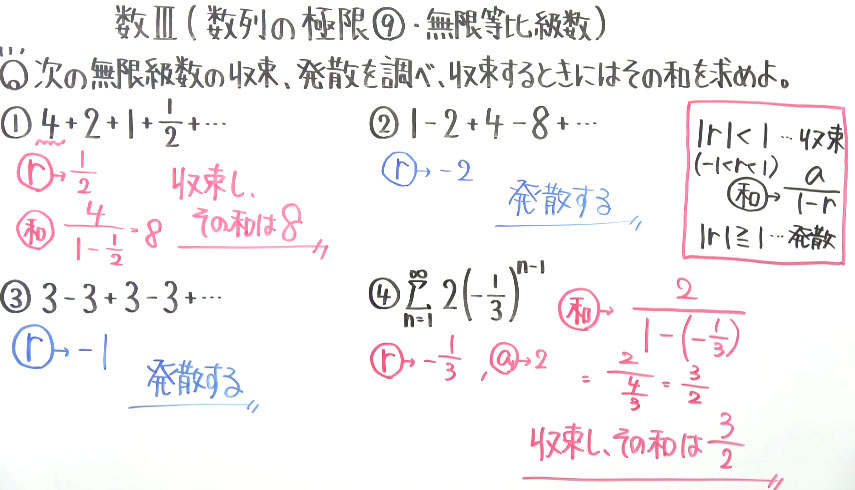 数Ⅲ(数列の極限⑨・無限等比級数)
Q 次の無限級数の収束、発散を調べ、収束するときにはその和を求めよ。
① 4+2+1+1/2+…
r→1/2
和 4/(1-1/2)=8
収束し、
その和は8
② 1-2+4-8+…
r→-2
発散する
|r|<1…収束
(-1<r<1)
和→a/(1-r)
|r|≧1…発散
③ 3-3+3-3+…
r→-1
発散する
④ ∞Σn=1 2(-1/3)^n-1
r→-1/3, a→2
和→2/(1-(-1/3))
=2/(4/3)=3/2
収束し、その和は3/2